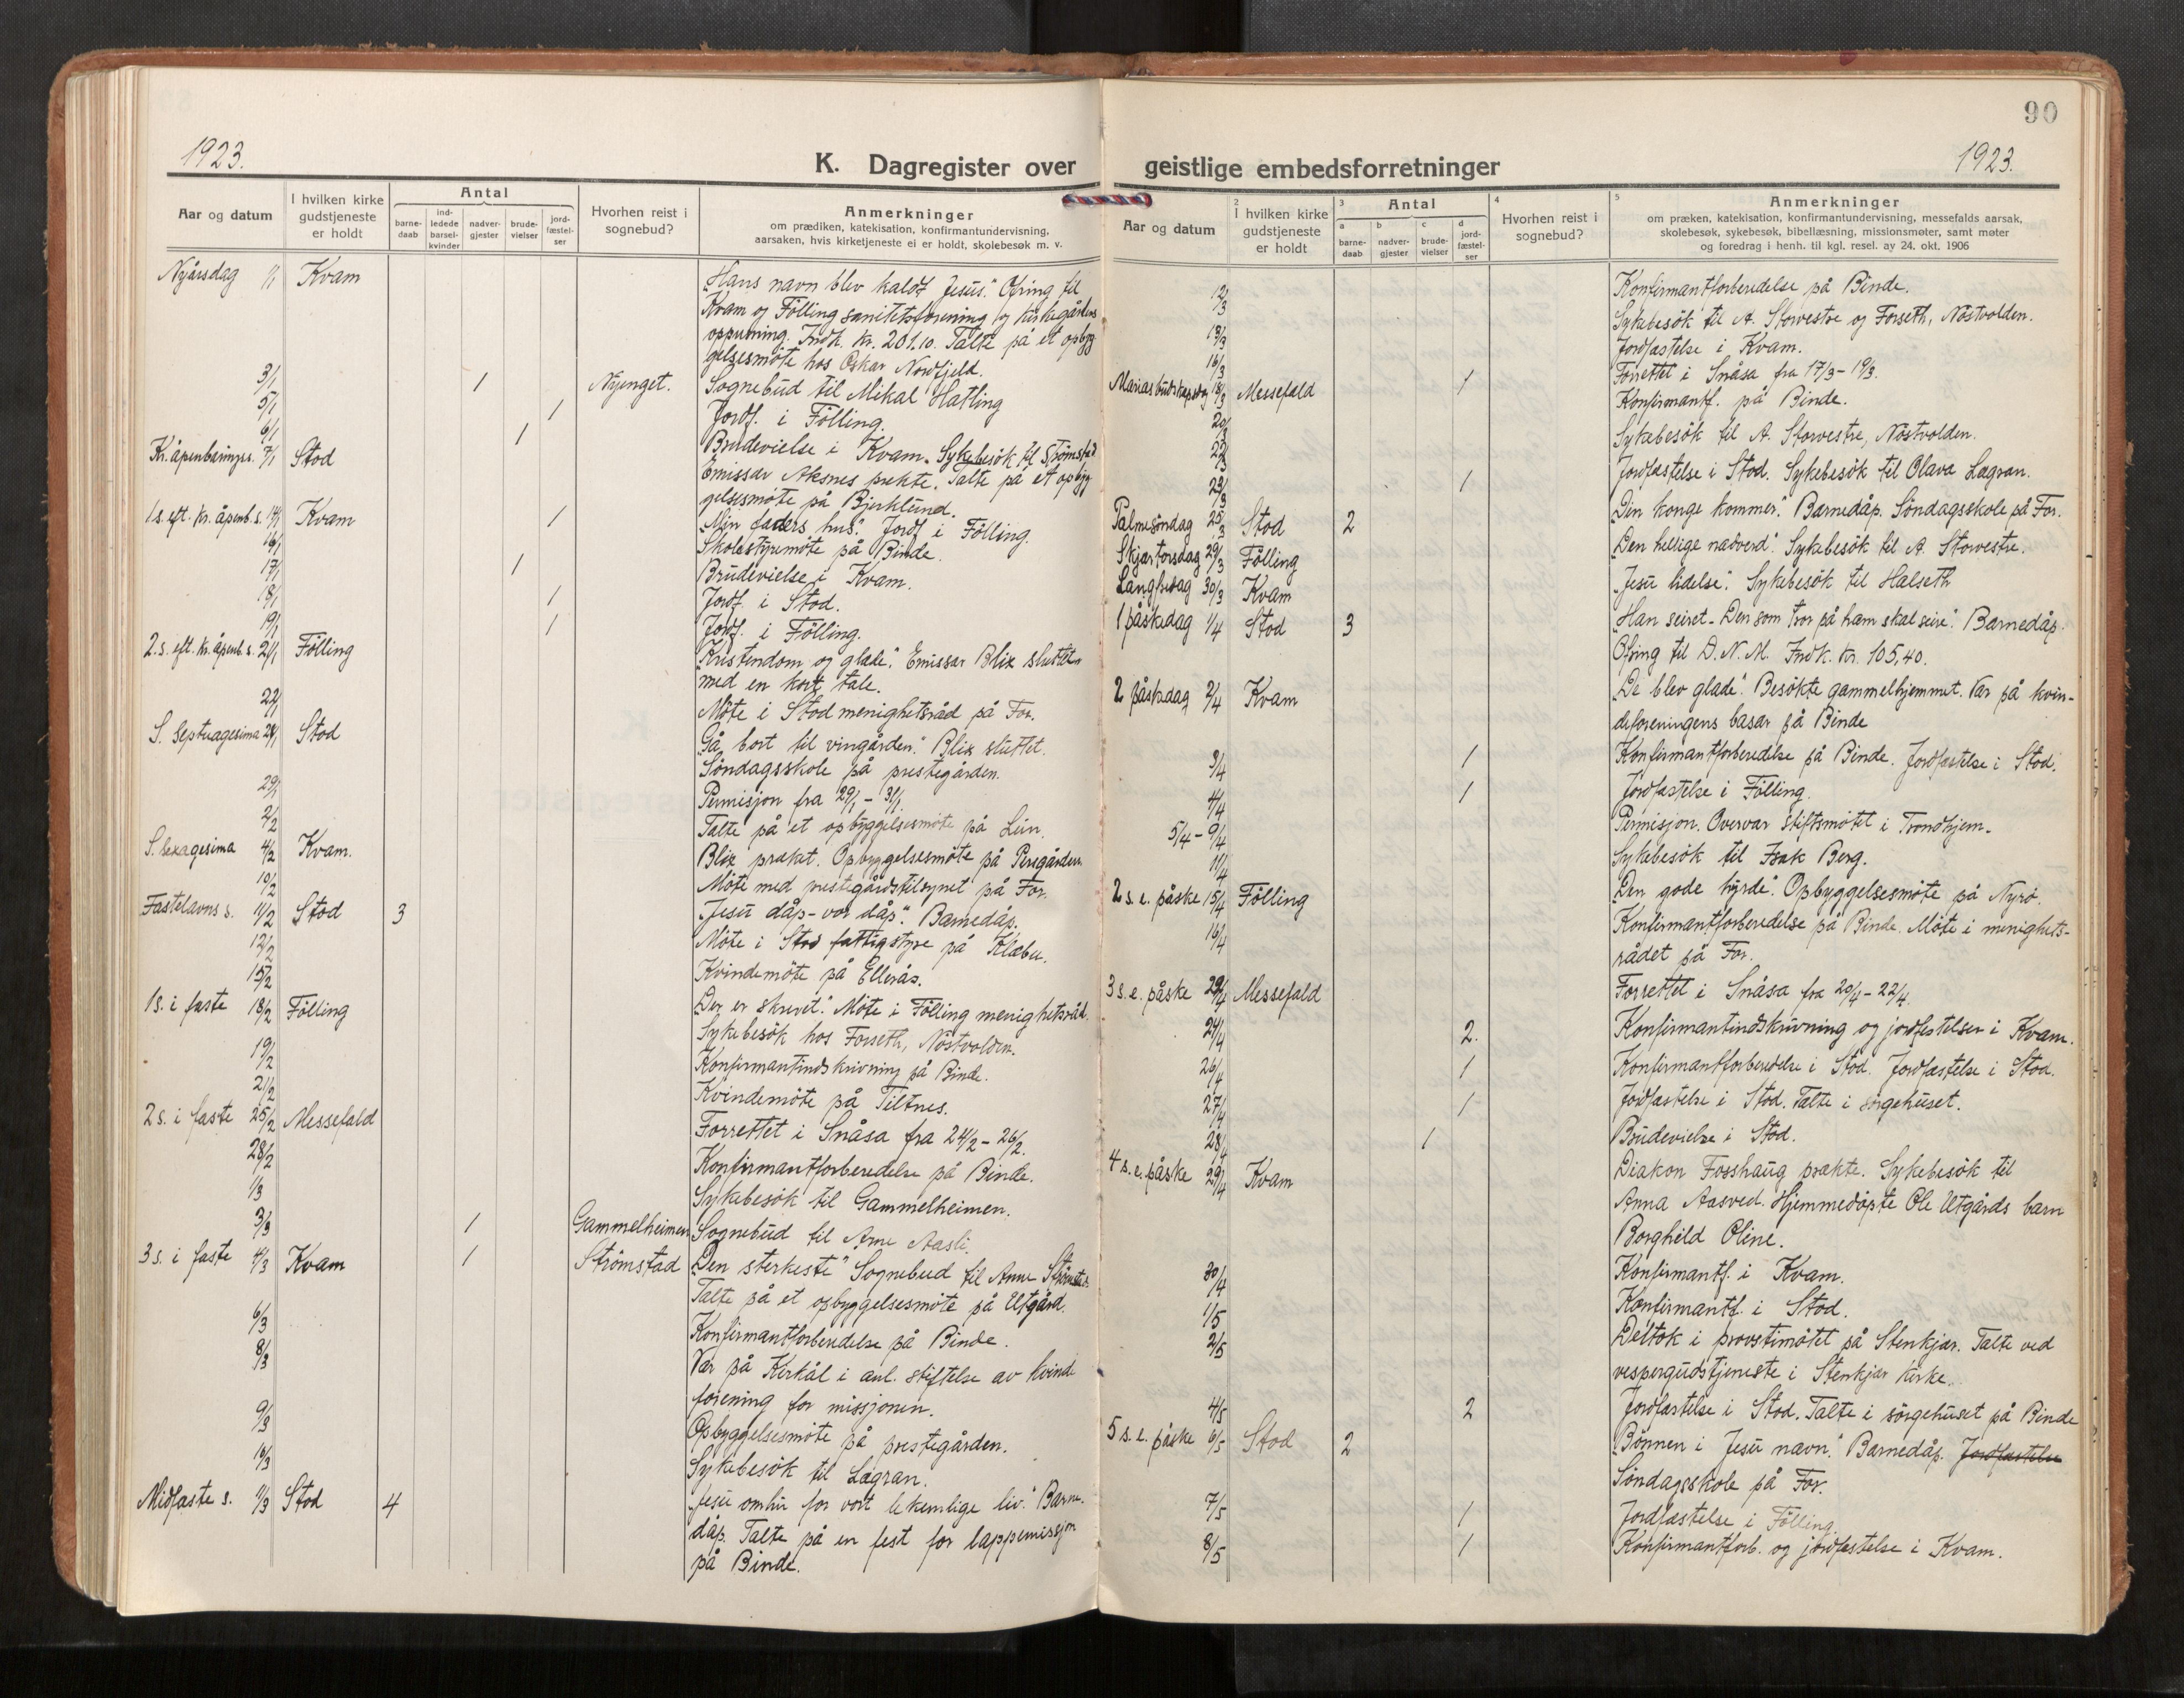 90
1923.
K. Dagregister over
Aar og datum
I hvilken kirke gudstjeneste er holdt
Antal
barne-daab
ind-ledede barsel-kvinder
nadver-gjester
brude-vielser
jord-fæstel-ser
Hvorhen reist i sognebud?
Anmerkninger
om prædiken, katekisation, konfirmantundervisning,
aarsaken, hvis kirketjeneste ei er holdt, skolebesøk m. v.
Nyårsdag 1/1 Kvam „Hans navn blev kaldt Jesus." Ofring til
Kvam og Fölling sanitetsforening og kirkegårdens
oppudning. Indk. kr. 201.10. Talte på et opbyg
gelsesmöte hos Oskar Nordfjeld.
3/1 1 Nyenget. Sognebud til Mikal Hatling
5/1 1 Jordf. i Fölling.
6/1 1 Brudevielse i Kvam. Sykebesök til Strömstad
Kr. åpenbaringss. 7/1 Stod Emissær Aksnes prekte. Talte på et opbyg
gelsesmöte på Bjerklund.
1 s. eft. kr. åpenb. s. 14/1 Kvam 1 „Min faders hus". Jordf i Fölling.
16/1 Skolestyremöte på Binde.
17/1 1 Brudevielse i Kvam.
18/1 1 Jordf. i Stod.
19/1 1 Jordf. i Fölling.
2. s. eft. kr. åpenb. s. 21/1 Fölling „Kristendom og glæde". Emissær Blix sluttet
med en kort tale.
22/1 Möte i Stod menighetsråd på For.
S. Septuagesima 28/1 Stod „Gå bort til vingården." Blix sluttet.
Söndagsskole på prestegården.
29/1 Permisjon fra 29/1 - 31/1
2/2 Talte på et opbyggelsesmöte på Lein.
S. Sexagesima 4/2 Kvam. Blix præket. Opbyggelsesmöte på Peregården
10/2 Möte med prestegårdstilsynet på For.
Fastelavns s. 11/2 Stod 3 „Jesu dåp - vor dåp". Barnedåp.
12/2 Möte i Stod fattigstyre på Klæbu.
15/2 Kvindemöte på Ellerås.
1 s. i faste 18/2 Fölling „Der er skrevet". Möte i Fölling menighetsråd.
Sykebesök hos Forseth, Nöstvolden.
19/2 Konfirmantindskrivning på Binde.
21/2 Kvindemöte på Tiltnes.
2 s. i faste 25/2 Messefald Forrettet i Snåsa fra 24/2 - 26/2.
28/2 Konfirmantforberedelse på Binde.
1/3 Sykebesök til Gammelheimen.
3/3 1 Gammelheimen Sognebud til Arne Aasli.
3 s. i faste 4/3 Kvam 1 Strömstad „Den sterkeste" Sognebud til Anne Strömstad.
Talte på et opbyggelsesmöte på Utgård.
6/3 Konfirmantforberedelse på Binde.
8/3 Var på Kirköl i anl. stiftelse av kvinde
forening for missjonen.
9/3 Opbyggelsesmöte på prestegården.
10/3 Sykebesök til Lægran.
Midfaste s. 11/3 Stod 4 „Jesu omhu for vort lekemlige liv." Barne-
dåp. Talte på en fest for lappemissjon
på Binde.
geistlige embedsforretninger
1923.
Aar og datum
2
I hvilken kirke gudstjeneste er holdt
3
Antal
a barne-daab
b nadver-gjester
c brude-vielser
d jord-fæstel-ser
4
Hvorhen reist i sognebud?
5
Anmerkninger
om præken, katekisation, konfirmantundervisning, messefalds aarsak,
skolebesøk, sykebesøk, bibellæsning, missionsmøter, samt møter
og foredrag i henh. til kgl. resel. av 24. okt. 1906
12/3 Konfirmantforberedelse på Binde.
13/3 Sykebesök til A. Storvestre og Forseth, Nöstvolden.
16/3 1 Jordfæstelse i Kvam.
Marias budskapsdag 18/3 Messefald Forrettet i Snåsa fra 17/3 - 19/3.
20/3 Konfirmantf. på Binde.
22/3 Sykebesök til A. Storvestre, Nöstvolden.
23/3 1 Jordfæstelse i Stod. Sykebesök til Olava Lægran.
Palmesöndag 25/3 Stod 2 „Din konge kommer". Barnedåp. Söndagsskole på For.
Skjærtorsdag 29/3 Fölling „Den hellige nadverd". Sykebesök til A. Storvestre.
Langfredag 30/3 Kvam „Jesu lidelse". Sykebesök til Halseth
1 påskedag 1/4 Stod 3 „Han seiret - Den som tror på ham skal seire". Barnedåp.
Ofring til D.N.M. Indk. kr. 105,40.
2 påskedag 2/4 Kvam „De blev glade". Besökte gammelhjemmet. Var på kvin-
deforeningens basar på Binde
3/4 1 Konfirmantforberedelse på Binde. Jordfæstelse i Stod.
4/4 1 Jordfæstelse i Fölling.
5/4 - 9/4 Permisjon. Overvar stiftsmötet i Trondhjem.
11/4 Sykebesök til Isak Berg.
2 s. e. påske 15/4 Fölling „Den gode hyrde". Opbyggelsesmöte på Nyrö.
16/4 Konfirmantforberedelse på Binde. Möte i menighets-
rådet på For.
3 s. e. påske 22/4 Messefald Forrettet i Snåsa fra 20/4 - 22/4.
24/4 2. Konfirmantindskrivning og jordfestelser i Kvam.
26/4 1 Konfirmantforberedelse i Stod. Jordfæstelse i Stod.
27/4 1 Jordfæstelse i Stod. Talte i sörgehuset.
28/4 1 Brudevielse i Stod.
4 s. e. påske 29/4 Kvam Diakon Fosshaug prækte. Sykebesök til
Anna Aasved. Hjemmedöpte Ole Utgårds barn
Borghild Oline.
30/4 Konfirmantf. i Kvam.
1/5 Konfirmantf. i Stod.
2/5 Deltok i provstimötet på Stenkjær. Talte ved
vespergudstjeneste i Stenkjær kirke.
4/5 2 Jordfæstelse i Stod. Talte i sörgehuset på Binde
5 s. e. påske 6/5 Stod 2 „Bönnen i Jesu navn". Barnedåp. Jordfæstelse
Söndagsskole på For.
7/5 1 Jordfæstelse i Fölling.
8/5 1 Konfirmantforb. og jordfestelse i Kvam.